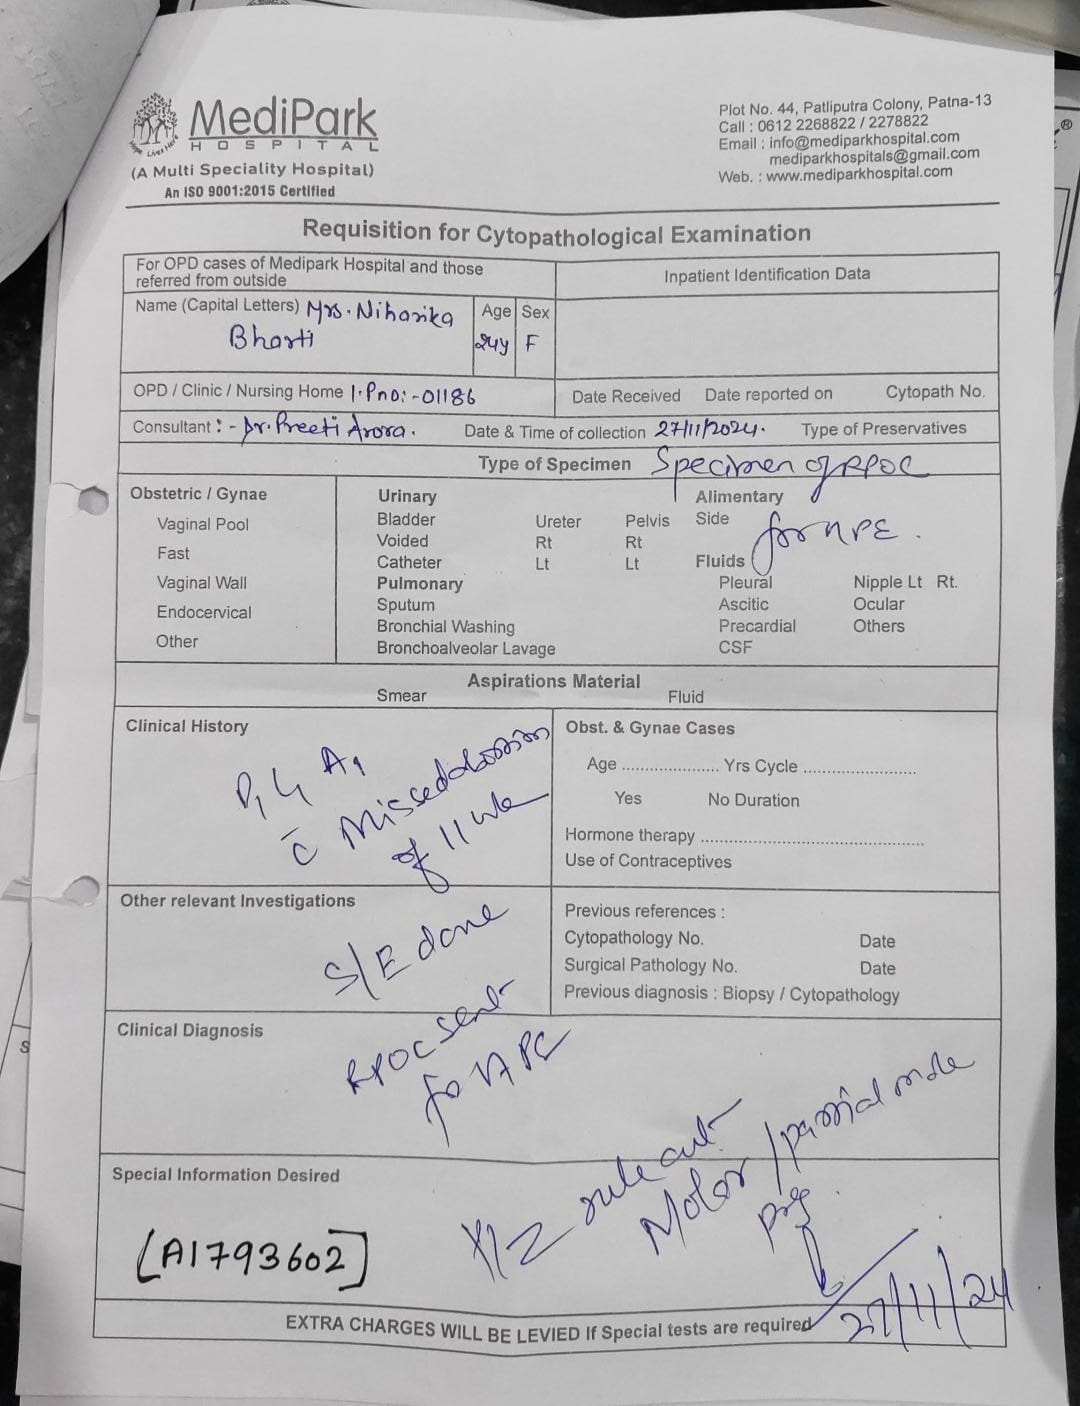 MediPark
HOSPITAL
(A Multi Speciality Hospital)
An ISO 9001:2015 Certified
Plot No. 44, Patliputra Colony, Patna-13
Call : 0612 2268822 / 2278822
Email : info@mediparkhospital.com
mediparkhospitals@gmail.com
Web. : www.mediparkhospital.com
Requisition for Cytopathological Examination
For OPD cases of Medipark Hospital and those
referred from outside
Inpatient Identification Data
Name (Capital Letters) Mrs. Niharika
Bharti
Age Sex
24y F
OPD / Clinic / Nursing Home I.P no:-01186
Date Received Date reported on Cytopath No.
Consultant :- Dr. Preeti Arora. Date & Time of collection 27/11/2024. Type of Preservatives
Type of Specimen Specimen of RPOC
for HPE.
Obstetric / Gynae
Vaginal Pool
Fast
Vaginal Wall
Endocervical
Other
Urinary
Bladder Ureter Pelvis
Voided Rt Rt
Catheter Lt Lt
Pulmonary
Sputum
Bronchial Washing
Bronchoalveolar Lavage
Alimentary
Side
Fluids
Pleural Nipple Lt Rt.
Ascitic Ocular
Precardial Others
CSF
Aspirations Material
Smear Fluid
Clinical History
P1 L1 A1
c̄ Missed abortion
of 11 wk
Obst. & Gynae Cases
Age .................... Yrs Cycle .......................
Yes No Duration
Hormone therapy .............................................
Use of Contraceptives
Other relevant Investigations
S/E done
Previous references :
Cytopathology No. Date
Surgical Pathology No. Date
Previous diagnosis : Biopsy / Cytopathology
Clinical Diagnosis
RPOC sent
for HPE
Special Information Desired
Plz rule out
Molar / partial mole
preg.
[A1793602]
27/11/24
EXTRA CHARGES WILL BE LEVIED If Special tests are required